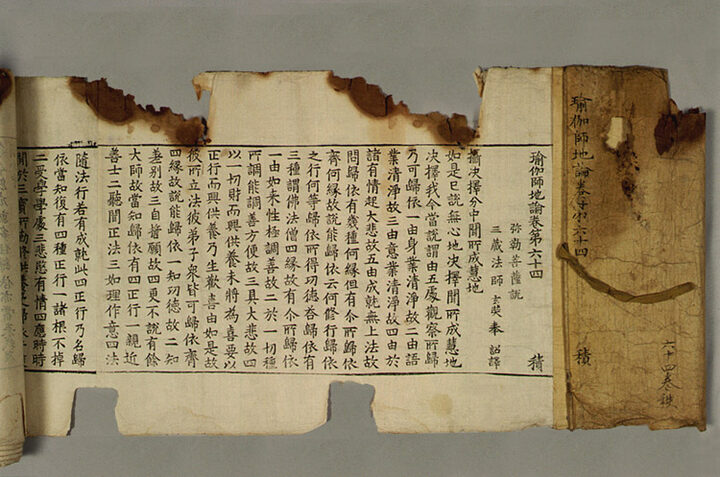 瑜伽師地論卷第六十四
積
六十四卷
瑜伽師地論卷第六十四 積
弥勒菩薩說
三藏法師玄奘奉 詔譯
攝決擇分中聞所成慧地
如是已說無心地決擇聞所成慧地
決擇我今當說謂由五處觀察所歸
乃可歸依一由身業清淨故二由語
業清淨故三由意業清淨故四由於
諸有情起大悲故五由成就無上法故
問歸依有幾種何緣但有尒所歸依
齊何緣故說能歸依云何修行歸依
之行何等歸依所得功德荅歸依有
三種謂佛法僧四緣故有尒所歸依
一由如來性極調善故二於一切種
所調能調善方便故三具大悲故四
以一切財而興供養未將為喜要以
正行而興供養乃生歡喜由如是故
彼所立法彼弟子衆皆可歸依齊
四緣故說能歸依一知功德故二知
差別故三自誓願故四更不說有餘
大師故當知歸依有四正行一親近
善士二聽聞正法三如理作意四法
隨法行若有成就此四正行乃名歸
依當知復有四種正行一諸根不掉
二受學學處三悲愍有情四應時時
間於三寶所勤修供養